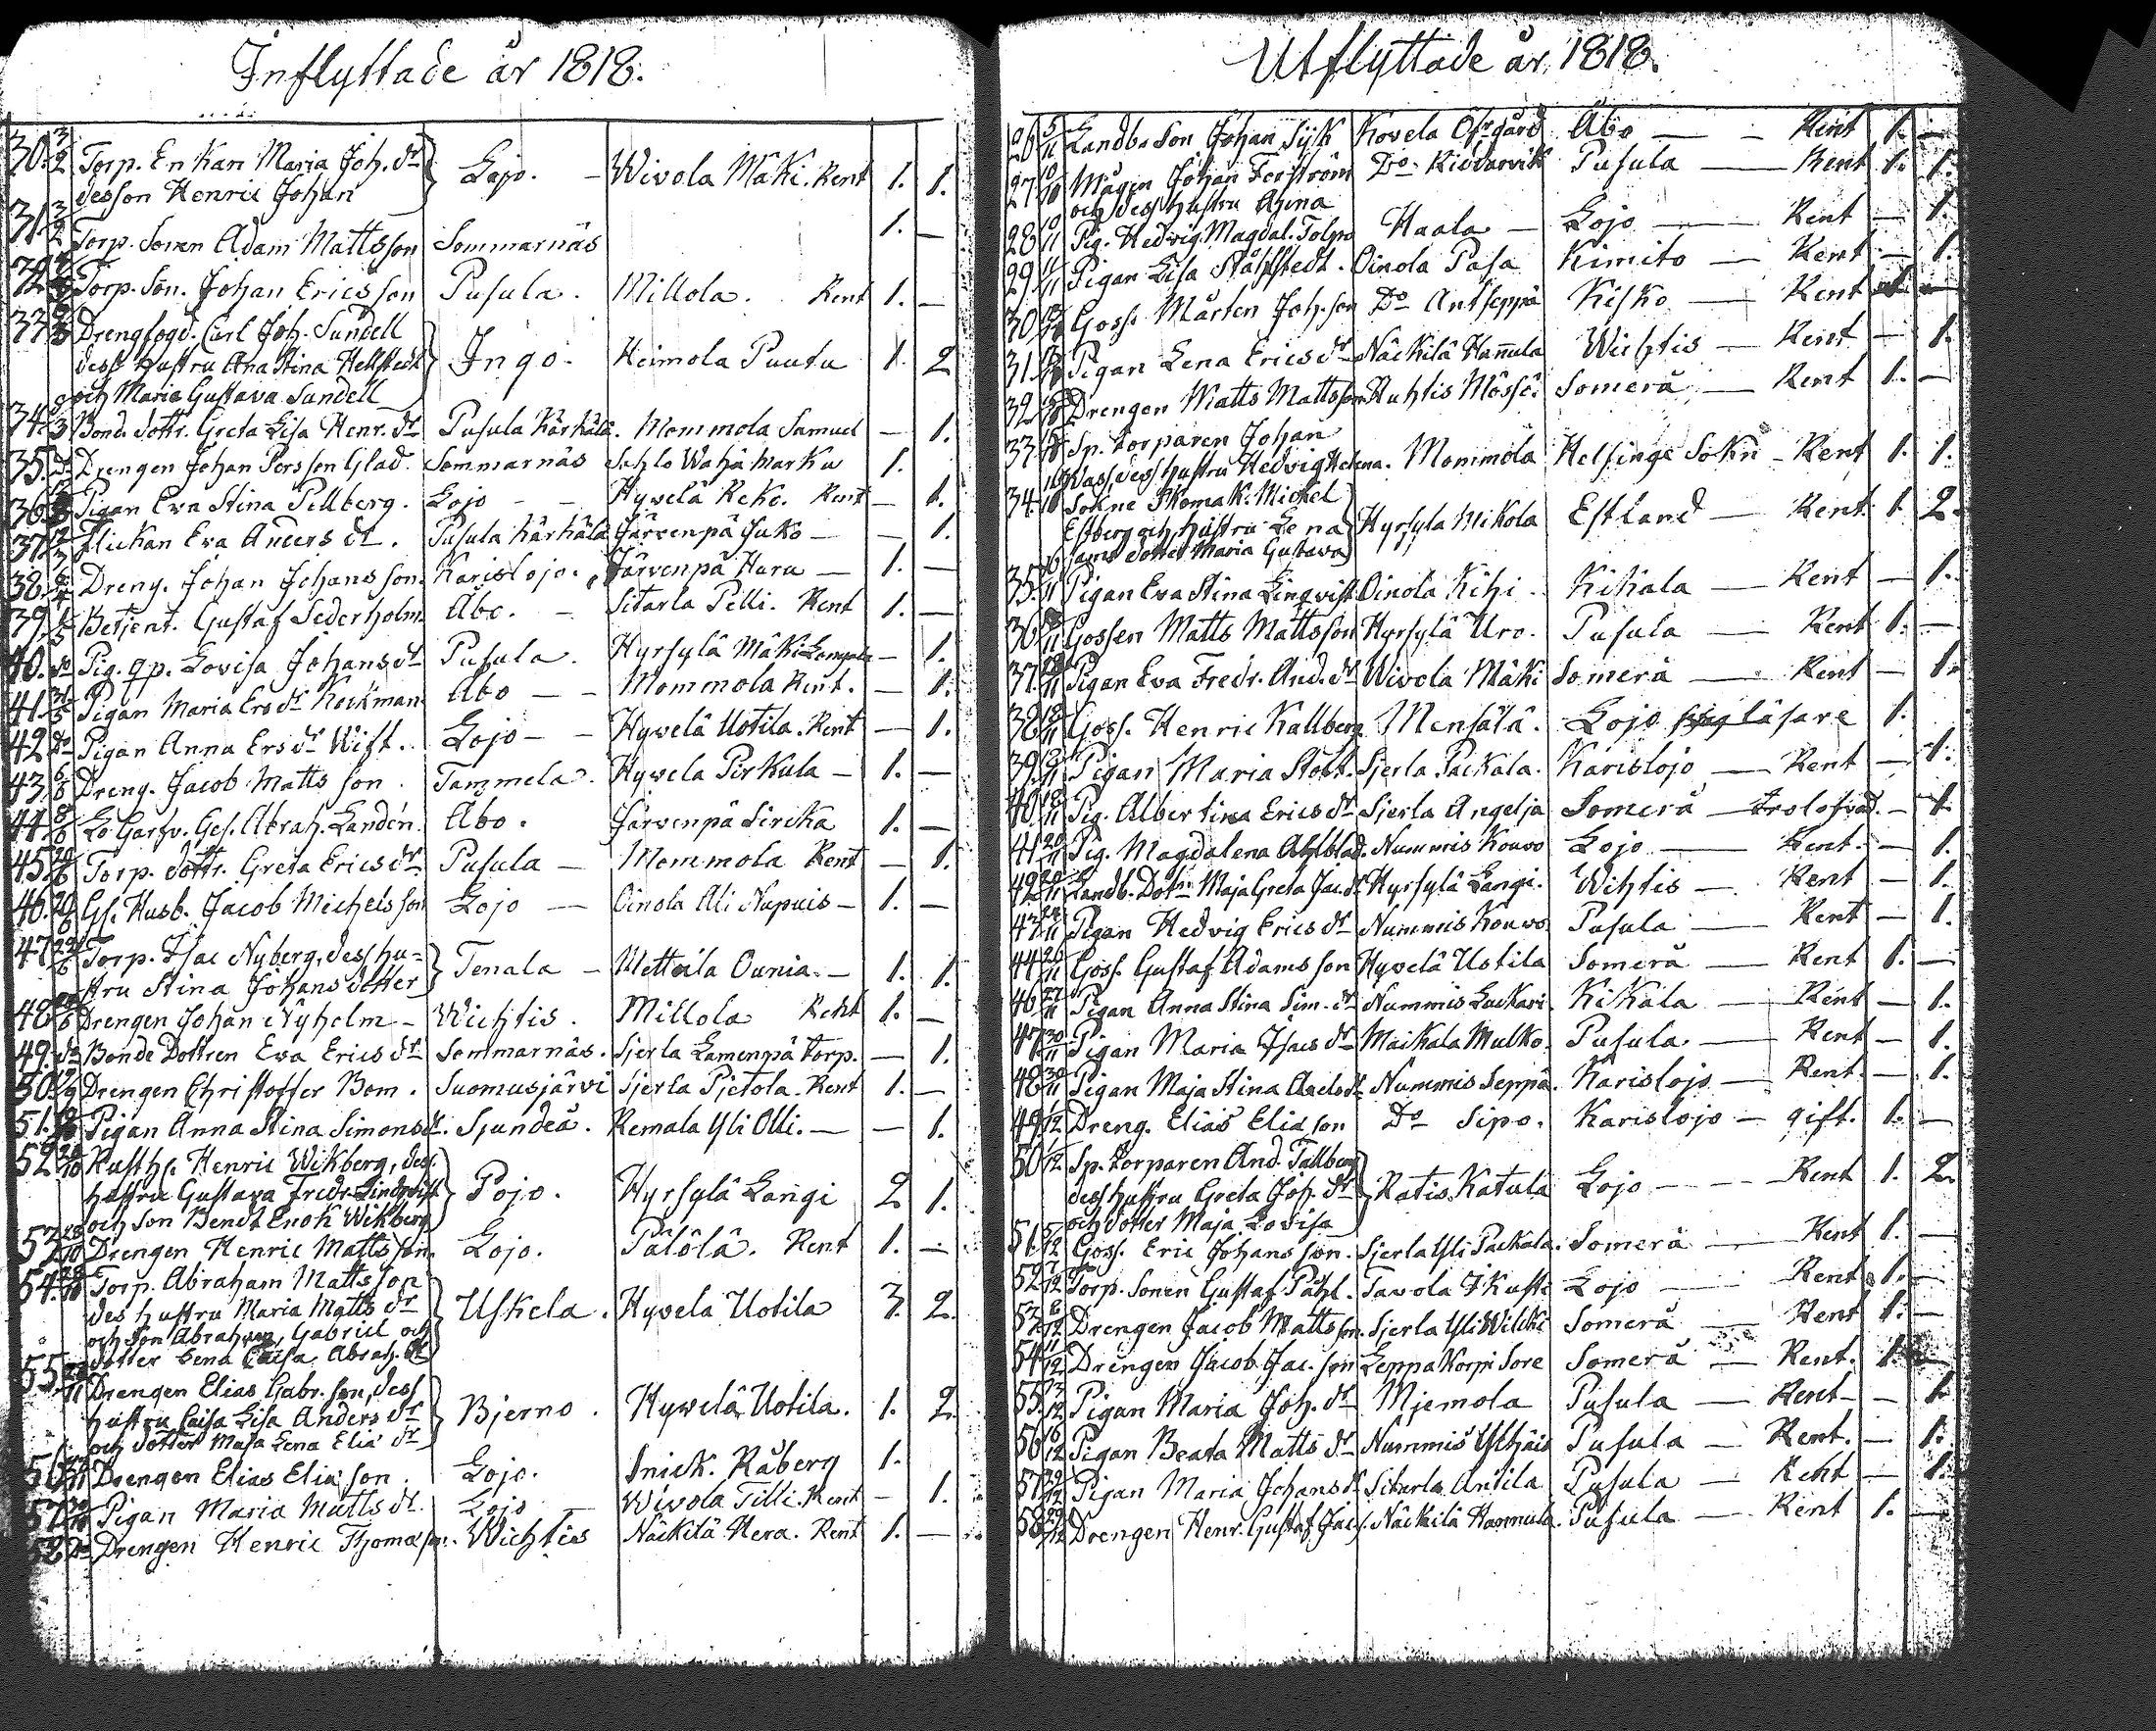 Inflyttade år 1818.
30. 3/2 Torp. Enkan Maria Joh. dr Lojo. - Wivola Mäki. Rent 1. 1.
desson Henric Johan
31 3/2 Torp. Sonen Adam Mattsson Sommarnäs 1. —
32 Torp. Son. Johan Ericsson Pusula. Millola. Rent 1. —
33 Drengfogd. Carl Joh. Sundell
dess hustru Ana Stina Hellstedt Ingo. Heimola Puutu 1. 2
och Maria Gustava Sundell
34. Bond. dottr. Greta Lisa Henr. dr Pusula Kärkälä. Mommola Samuel — 1.
35. do Drengen Johan Persson Glad. Sommarnäs Sahlo Wahä Marku 1.
36. Pigan Eva Stina Pellberg. Lojo - - Hyvelä Reko. Rent — 1.
37 Flickan Eva Anders dr. Pusula Kärkälä Järvenpä Juko — — 1.
38. Dreng. Johan Johansson. Karislojo. Järvenpä Huru — 1. —
39. Betjent. Gustaf Sederholm. Åbo. - Sitarla Pelli. Rent 1. —
40. do Pig. qp. Lovisa Johans dr Pusula. Hyrsylä Mäki Lampola — 1.
41. 31/5 Pigan Maria Ers dr Keckman Åbo — - Mommola Rent. — 1.
42 do Pigan Anna Ers dr Wist. Lojo - - Hyvelä Uotila. Rent — 1.
43. 6/6 Dreng. Jacob Mattsson. Tammela. Hyvela Pirkula — 1. —
44. 8/6 Lo Garfv. Ges. Abrah. Landén. Åbo. Järvenpä Sirika 1. —
45. 20/6 Torp. dottr. Greta Erics dr Pusula — Mommola Rent — 1.
46. 20/6 Gf. Husb. Jacob Michelsson Lojo — Oinola Ali Nupuis — 1. —
47 22/6 Torp. Isac Nyberg, dess hu=
stru Stina Johans dotter Tenala — Mettoila Ounia. — 1. 1.
48 Drengen Johan Nyholm — Wichtis. Millola Rent 1. —
49. do Bonde Dottren Eva Erics dr Sommarnäs. Sjerla Lamenpä torp. — 1.
50. Drengen Christoffer Bom. Suomusjärvi Sjerla Pietola. Rent 1. —
51. Pigan Anna Stina Simons dr. Sjundeå. Remala Yli Olli. — — 1.
52 Rusth. Henric Wikberg, dess
hustru Gustava Fredr. Lindqvist Pojo. Hyrsylä Langi 2 1.
och son Bendt Enok Wikberg
53 28/10 Drengen Henric Mattsson. Lojo. Pälölä. Rent 1. —
54. 28/10 Torp. Abraham Mattsson
des hustru Maria Matts dr Uskela. Hyvela Uotila 3. 2.
och Son Abraham, Gabriel och
dotter Lena Caisa Abrah. dr
55 Drengen Elias Gabr. son, dess
hustru Caisa Lisa Anders dr Bjerno. Hyvelä Uotila. 1. 2.
och dotter Maja Lena Elia dr
56 Drengen Elias Eliasson. Lojo. Snick. Råberg 1.
57 Pigan Maria Matts dr. Lojo — Wivola Tilli. Rent — 1.
58 do Drengen Henric Thomasson. Wichtis Näckilä Hera. Rent 1. —
Utflyttade år 1818.
26 5/11 Landbo Son Johan Syk Kovela Ofrgård Åbo — - Rent 1. —
27 10/10 Mågen Johan Forström Do Kiddarvik Pusula — Rent 1. 1.
och dess hustru Anna
28 10/11 Pig. Hedvig Magdal. Tolpo Haala — Lojo — Rent — 1.
29 11/11 Pigan Lisa Stålstedt. Oinola Pasa Kimito — Rent — 1.
30 Goss. Mårten Joh. son Do Antseppä Kisko — Rent
31 Pigan Lena Erics dr Näckilä Hannula Wichtis — Rent — 1.
32 Drengen Matts Mattsson Ruhtis Mässe. Somerä — Rent 1. —
33 Sp. torparen Johan
Wass, dess hustru Hedvig Helena. Mommola Helsinge Sokn - Rent 1. 1.
34 Sokne Skomak. Michel
Estberg och hustru Lena Hyrsyla Mikola Estland — Rent. 1. 2.
samt dotter Maria Gustava
35. Pigan Eva Stina Linqvist Oinola Kihi. Kikala — Rent — 1.
36 Gossen Matts Mattsson Hyrsylä Uro. Pusula — Rent 1. —
37. Pigan Eva Fredr. And. dr Wivola Mäki Somerä — Rent — 1.
38 Goss. Henric Kallberg Mensälä. Lojo läsare 1.
39. Pigan Maria Stolt. Sjerla Packala. Karislojo — Rent — 1.
40 Pig. Albertina Erics dr Sjerla Angelja Somerä — trolofvad. — 1.
41 20/11 Pig. Magdalena Ahlblad. Nummis Kouvo Lojo — Rent. — 1.
42 20/11 Landb. Dotn Maja Greta Jac. dr Hyrsylä Langi. Wihtis — Rent — 1.
43 Pigan Hedvig Erics dr Nummis Kouvo Pusula — Rent — 1.
44 26/11 Goss. Gustaf Adamsson Hyvelä Uotila Somerä — Rent 1. —
46 27/11 Pigan Anna Stina Sim. dr Nummis Luckari. Kikala — Rent — 1.
47 30/11 Pigan Maria Isacs dr Maikala Mulko. Pusula — Rent — 1.
48 30/11 Pigan Maja Stina Axels dr Nummis Seppä. Karislojo — Rent — 1.
49 1/12 Dreng. Elias Eliasson Do Sipo. Karislojo — gift. 1. —
50 1/12 Sp. torparen And. Tallberg
dess hustru Greta Joh. dr Ratis Katula Lojo — - - Rent 1. 2.
och dotter Maja Lovisa
51. 5/12 Goss. Eric Johansson. Sjerla Yli Packala. Somerä — Rent 1. —
52 7/12 Torp. Sonen Gustaf Påhl. Tavola Lojo — Rent 1. —
53 8/12 Drengen Jacob Mattsson. Sjerla Yli Wilcki Somerä — Rent 1. —
54 11/12 Drengen Jacob Jac. son Leppakorpi Sore Somerä — Rent. 1. —
55. 13/12 Pigan Maria Joh. dr Mjemola Pusula — Rent — — 1.
56 16/12 Pigan Beata Matts dr Nummis Pusula — Rent. — 1.
57 Pigan Maria Johans dr Sitarla Antila Pusula — Rent — 1.
58 29/12 Drengen Henr. Gustaf Jacs. Näckilä Hannula. Pusula — Rent 1. —